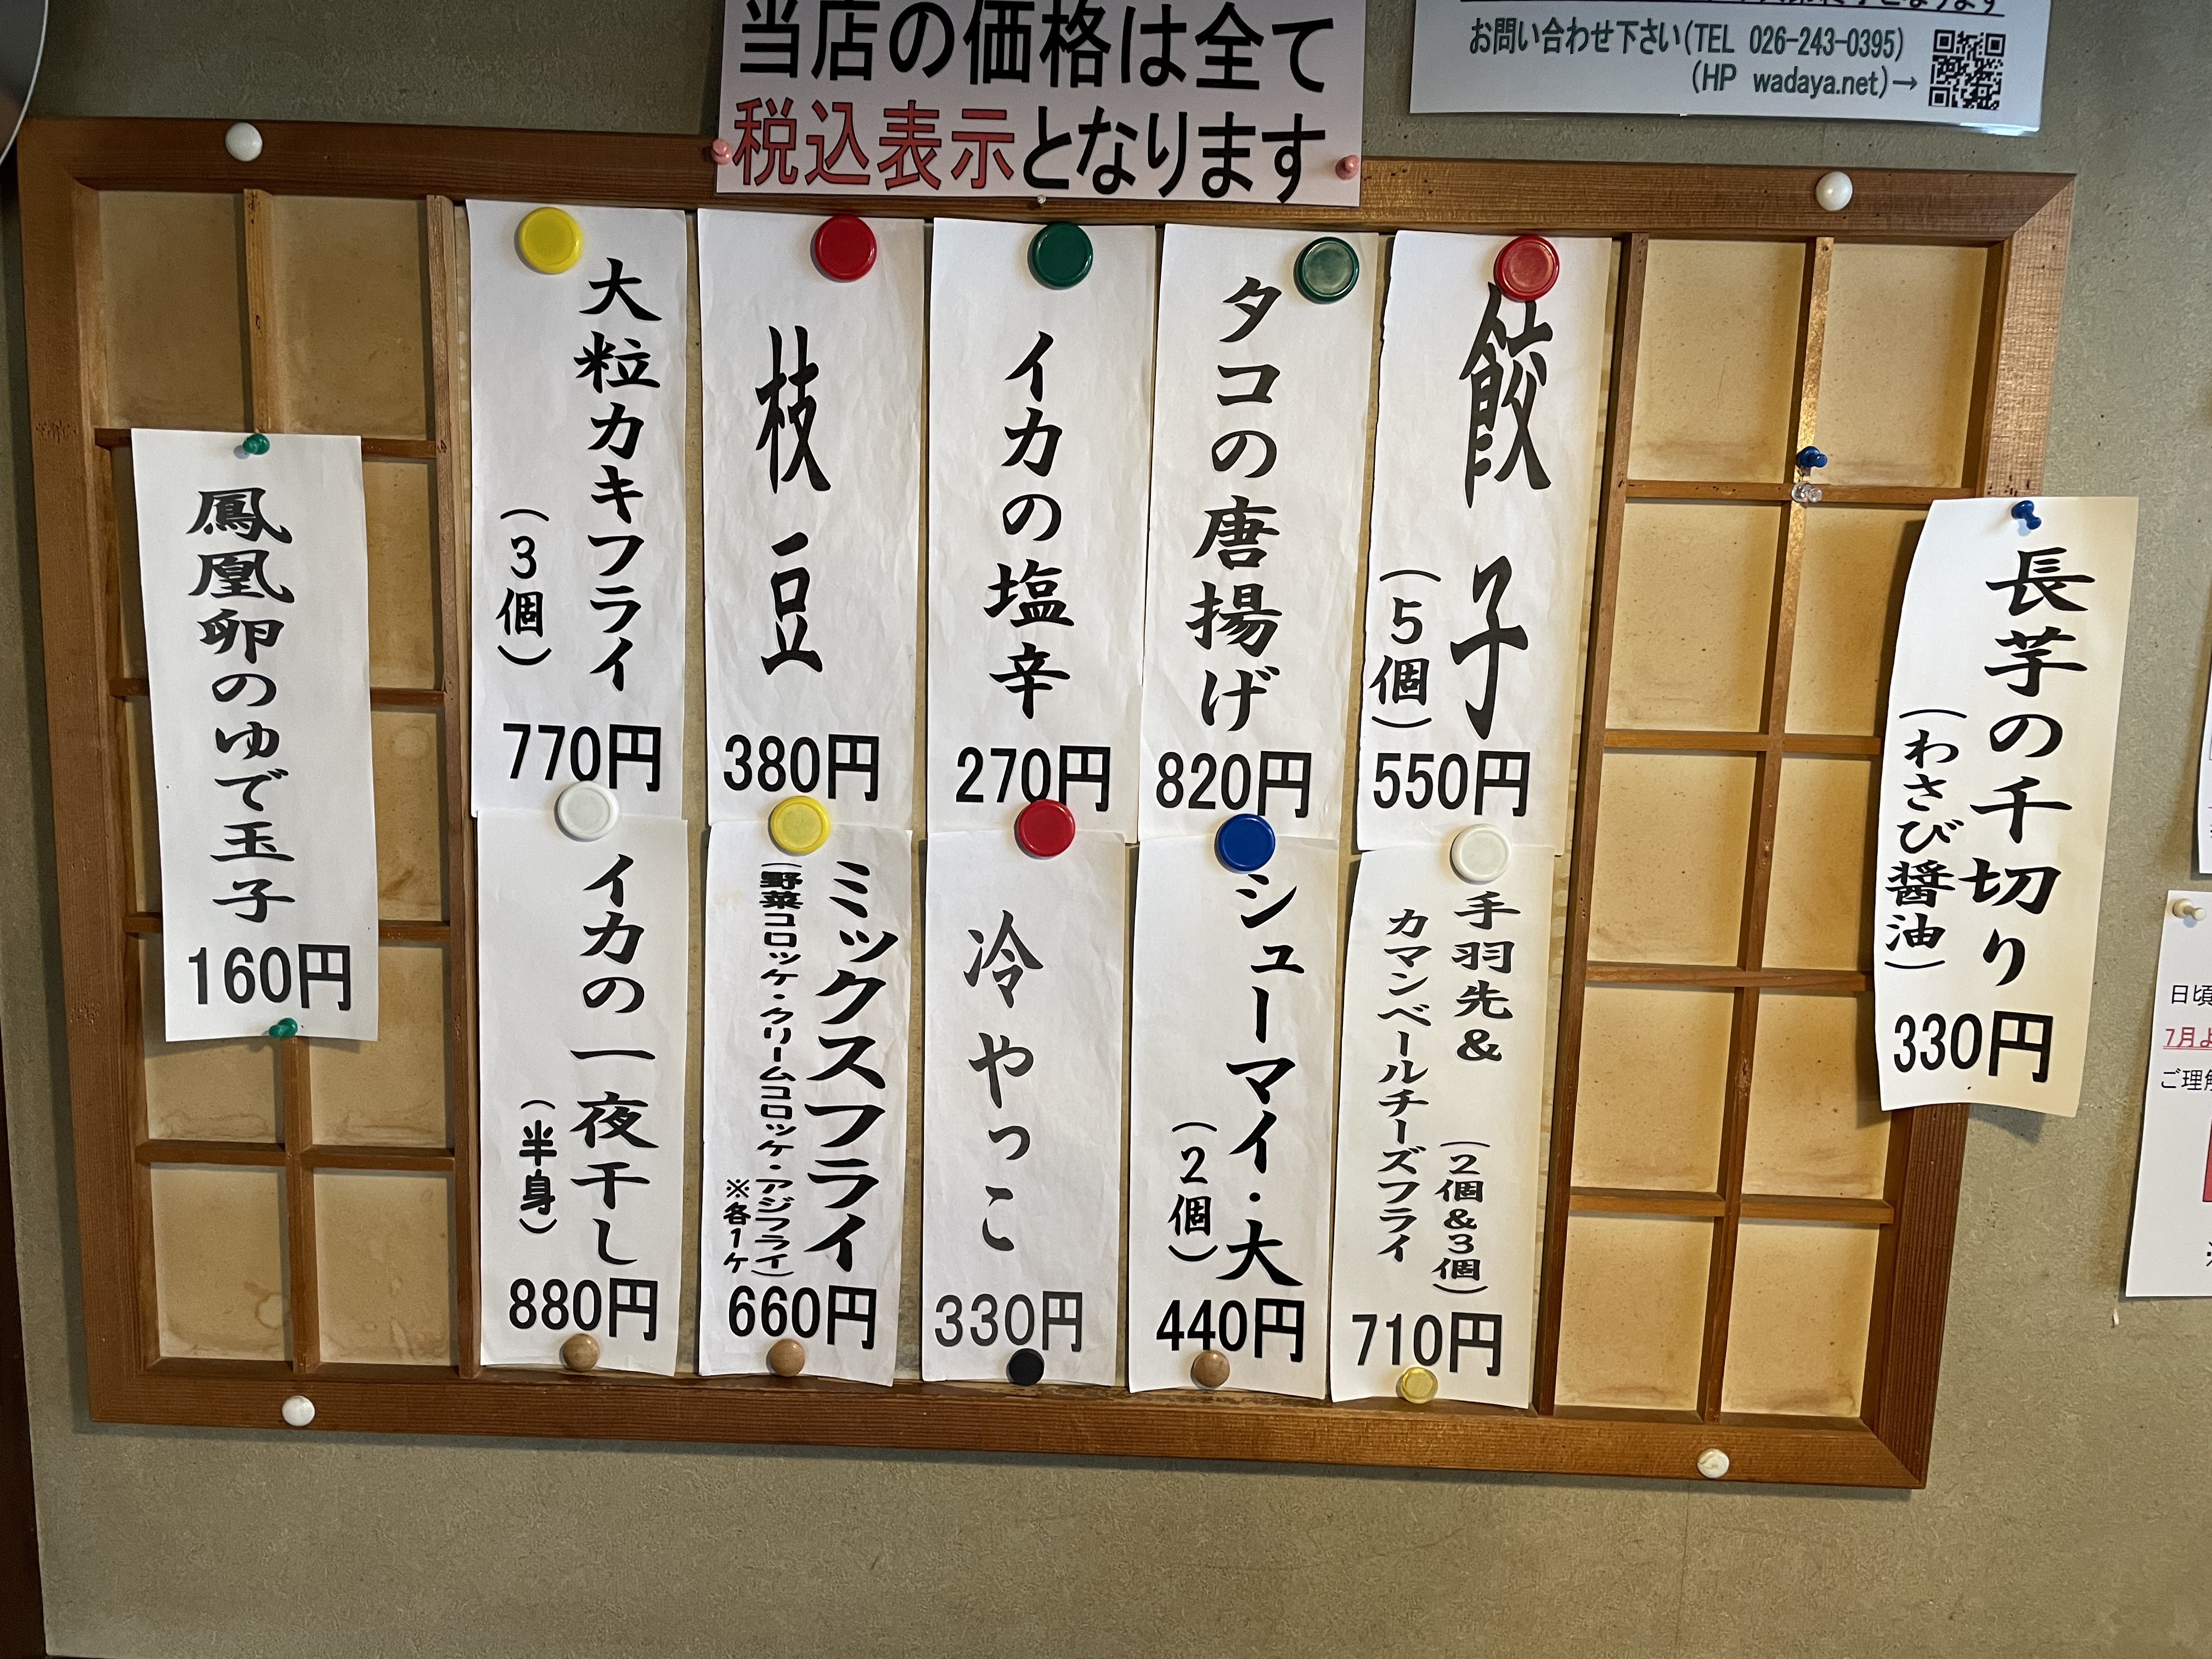 当店の価格は全て
税込表示となります
お問い合わせ下さい(TEL 026-243-0395)
(HP wadaya.net)→
長芋の千切り
(わさび醤油)
330円
餃子
(5個)
550円
タコの唐揚げ
820円
イカの塩辛
270円
枝豆
380円
大粒カキフライ
(3個)
770円
手羽先&
カマンベールチーズフライ
(2個&3個)
710円
シューマイ・大
(2個)
440円
冷やっこ
330円
ミックスフライ
(野菜コロッケ・クリームコロッケ・アジフライ)
※各1ケ
660円
イカの一夜干し
(半身)
880円
鳳凰卵のゆで玉子
160円
日頃
7月よ
ご理解